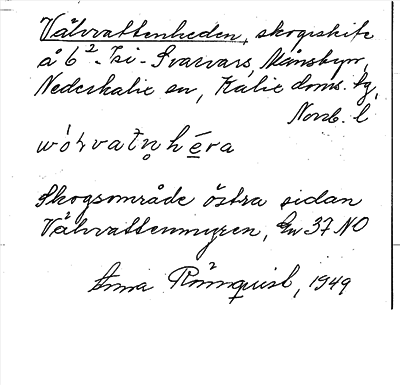 Vålvvattenheden, skogsskifte
å 6²-Isi-Svarvars, Månsbyn,
Nederkalix sn, Kalix doms. tg,
Norrb. l
Skogsområde östra sidan
Vålvvattenmyren, Ew 37 NO
Anna Rönnquist, 1949